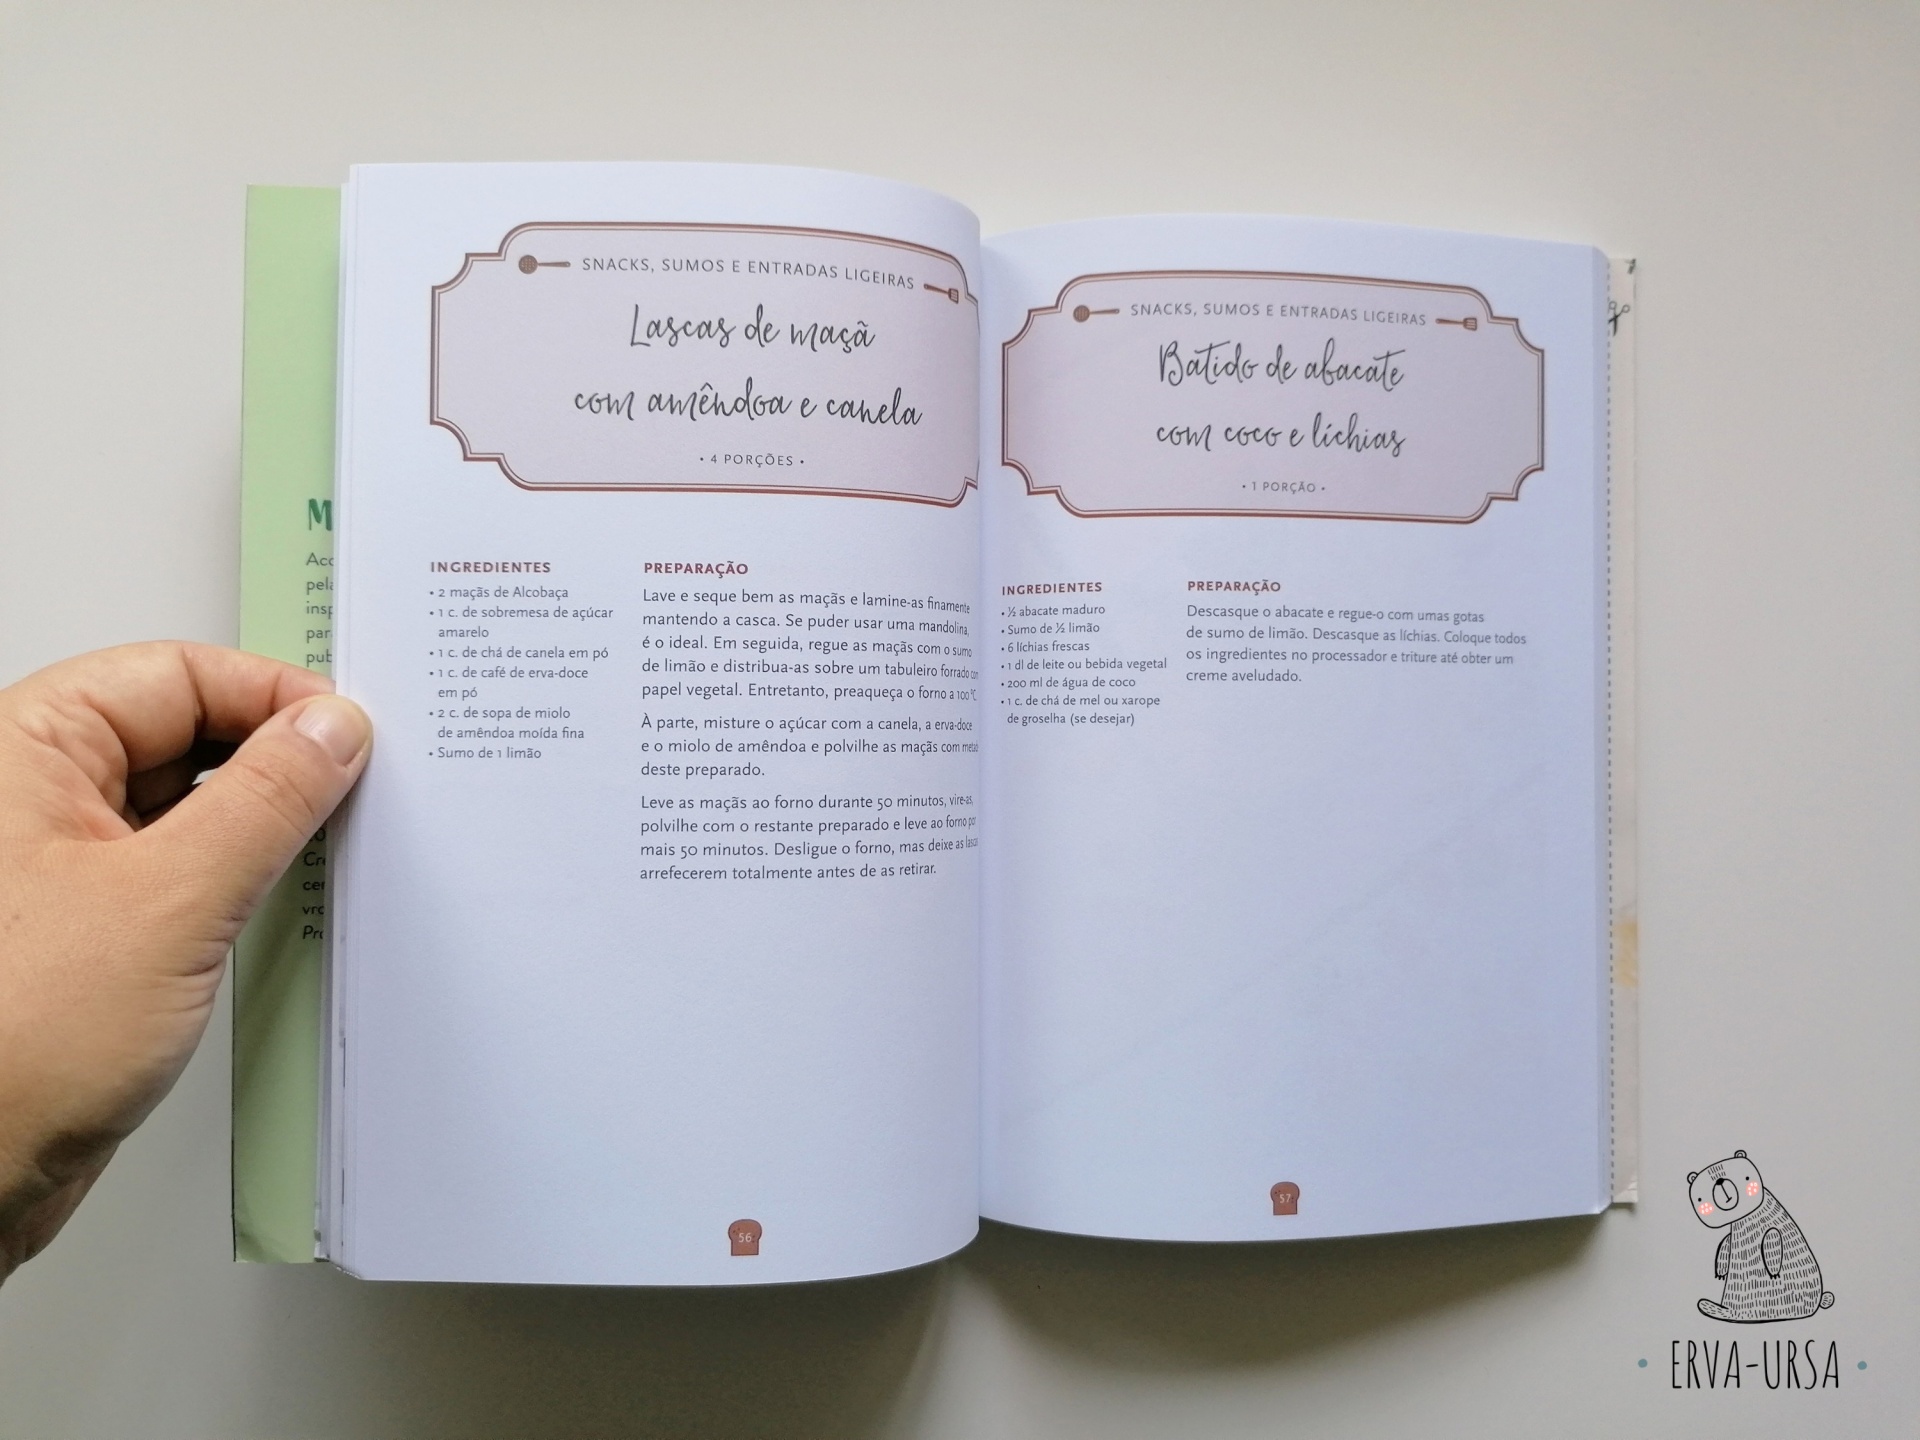 M
Acc
pela
insp
par
pub
Cr
cer
vro
Pro
SNACKS, SUMOS E ENTRADAS LIGEIRAS
Lascas de maçã
com amêndoa e canela
• 4 PORÇÕES •
INGREDIENTES
• 2 maçãs de Alcobaça
• 1 c. de sobremesa de açúcar
amarelo
• 1 c. de chá de canela em pó
• 1 c. de café de erva-doce
em pó
• 2 c. de sopa de miolo
de amêndoa moída fina
• Sumo de 1 limão
PREPARAÇÃO
Lave e seque bem as maçãs e lamine-as finamente
mantendo a casca. Se puder usar uma mandolina,
é o ideal. Em seguida, regue as maçãs com o sumo
de limão e distribua-as sobre um tabuleiro forrado com
papel vegetal. Entretanto, preaqueça o forno a 100 °C.
À parte, misture o açúcar com a canela, a erva-doce
e o miolo de amêndoa e polvilhe as maçãs com metad
deste preparado.
Leve as maçãs ao forno durante 50 minutos, vire-as,
polvilhe com o restante preparado e leve ao forno por
mais 50 minutos. Desligue o forno, mas deixe as lascas
arrefecerem totalmente antes de as retirar.
56
SNACKS, SUMOS E ENTRADAS LIGEIRAS
Batido de abacate
com coco e líchias
• 1 PORÇÃO •
INGREDIENTES
• ½ abacate maduro
• Sumo de ½ limão
• 6 líchias frescas
• 1 dl de leite ou bebida vegetal
• 200 ml de água de coco
• 1 c. de chá de mel ou xarope
de groselha (se desejar)
PREPARAÇÃO
Descasque o abacate e regue-o com umas gotas
de sumo de limão. Descasque as líchias. Coloque todos
os ingredientes no processador e triture até obter um
creme aveludado.
57
• ERVA-URSA •